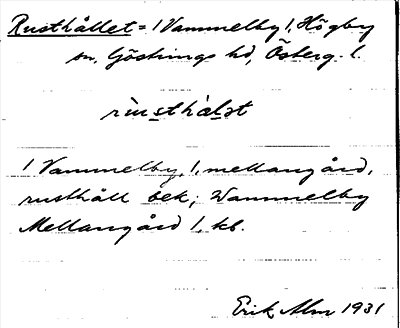 Rusthållet = 1 Vammelby 1, Högby
sn, Göstrings hd, Österg. l.
rùsthàlət
1 Vammelby, 1, mellangård,
rusthåll bek; Wammelby
Mellangård 1, kb.
Erik Alm 1931